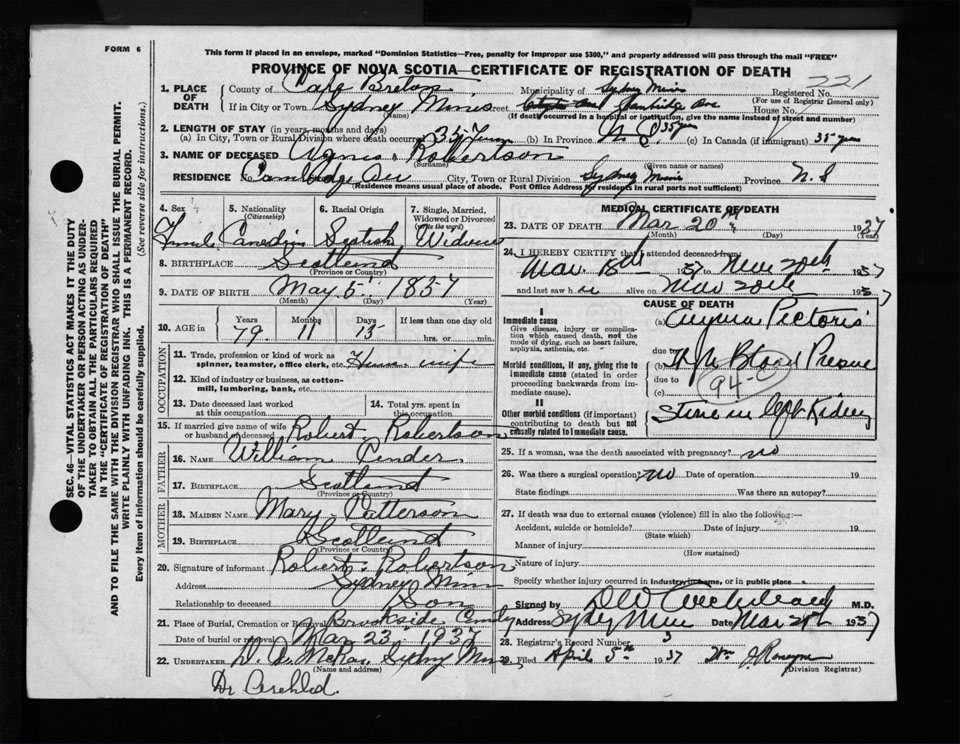 FORM 6
This form if placed in an envelope, marked "Dominion Statistics—Free, penalty for improper use $300," and properly addressed will pass through the mail "FREE"
PROVINCE OF NOVA SCOTIA—CERTIFICATE OF REGISTRATION OF DEATH
SEC. 46—VITAL STATISTICS ACT MAKES IT THE DUTY
OF THE UNDERTAKER OR PERSON ACTING AS UNDER-
TAKER TO OBTAIN ALL THE PARTICULARS REQUIRED
IN THE "CERTIFICATE OF REGISTRATION OF DEATH"
AND TO FILE THE SAME WITH THE DIVISION REGISTRAR WHO SHALL ISSUE THE BURIAL PERMIT.
WRITE PLAINLY WITH UNFADING INK. THIS IS A PERMANENT RECORD.
Every item of information should be carefully supplied.
(See reverse side for instructions.)
1. PLACE OF DEATH
County of Cape Breton Municipality of Sydney Mines Registered No. 221
(For use of Registrar General only)
If in City or Town Sydney Mines Street Cambridge Ave House No.
(If death occurred in a hospital or institution, give the name instead of street and number)
2. LENGTH OF STAY (in years, months and days)
(a) In City, Town or Rural Division where death occurred 35 Years (b) In Province N.S. 35 yrs (c) In Canada (if immigrant) 35 yrs
3. NAME OF DECEASED Agnes Robertson
(Surname) (Given name or names)
RESIDENCE Cambridge Ave City, Town or Rural Division Sydney Mines Province N.S
(Residence means usual place of abode. Post Office Address for residents in rural parts not sufficient)
4. Sex Female
5. Nationality (Citizenship) Canadian
6. Racial Origin Scotish
7. Single, Married, Widowed or Divorced (write the word) Widow
8. BIRTHPLACE Scotland
(Province or Country)
9. DATE OF BIRTH May 5 1857
(Month) (Day) (Year)
10. AGE in Years Months Days If less than one day old
79 11 15 hrs. or min.
OCCUPATION
11. Trade, profession or kind of work as spinner, teamster, office clerk, etc. House wife
12. Kind of industry or business, as cotton-mill, lumbering, bank, etc.
13. Date deceased last worked at this occupation
14. Total yrs. spent in this occupation
15. If married give name of wife or husband of deceased Robert Robertson
FATHER
16. NAME William Pender
17. BIRTHPLACE Scotland
(Province or Country)
MOTHER
18. MAIDEN NAME Mary Patterson
19. BIRTHPLACE Scotland
(Province or Country)
20. Signature of informant Robert Robertson
Address Sydney Mines
Relationship to deceased Son
21. Place of Burial, Cremation or Removal Brookside Cemetery
Date of burial or removal Mar 23 1937
22. UNDERTAKER Sydney Mines
(Name and address)
MEDICAL CERTIFICATE OF DEATH
23. DATE OF DEATH Mar 20th 1937
(Month) (Day) (Year)
24. I HEREBY CERTIFY that I attended deceased from
Mar 18th 1937 to Mar 20th 1937
and last saw her alive on Mar 20th 1937
CAUSE OF DEATH
I
Immediate cause
Give disease, injury or complication which caused death, not the mode of dying, such as heart failure, asphyxia, asthenia, etc.
(a) Angina Pectoris
due to
Morbid conditions, if any, giving rise to immediate cause (stated in order proceeding backwards from immediate cause).
(b) High Blood Pressure
due to
(c)
94-
II
Other morbid conditions (if important) contributing to death but not causally related to Immediate cause.
Stone in Left Kidney
25. If a woman, was the death associated with pregnancy? no
26. Was there a surgical operation? no Date of operation 19
State findings Was there an autopsy?
27. If death was due to external causes (violence) fill in also the following:—
Accident, suicide or homicide? Date of injury 19
(State which)
Manner of injury
(How sustained)
Nature of injury
Specify whether injury occurred in industry, in home, or in public place
Signed by M.D.
Address Sydney Mines Date 1937
28. Registrar's Record Number 3
29. Filed April 5th 1937
(Division Registrar)